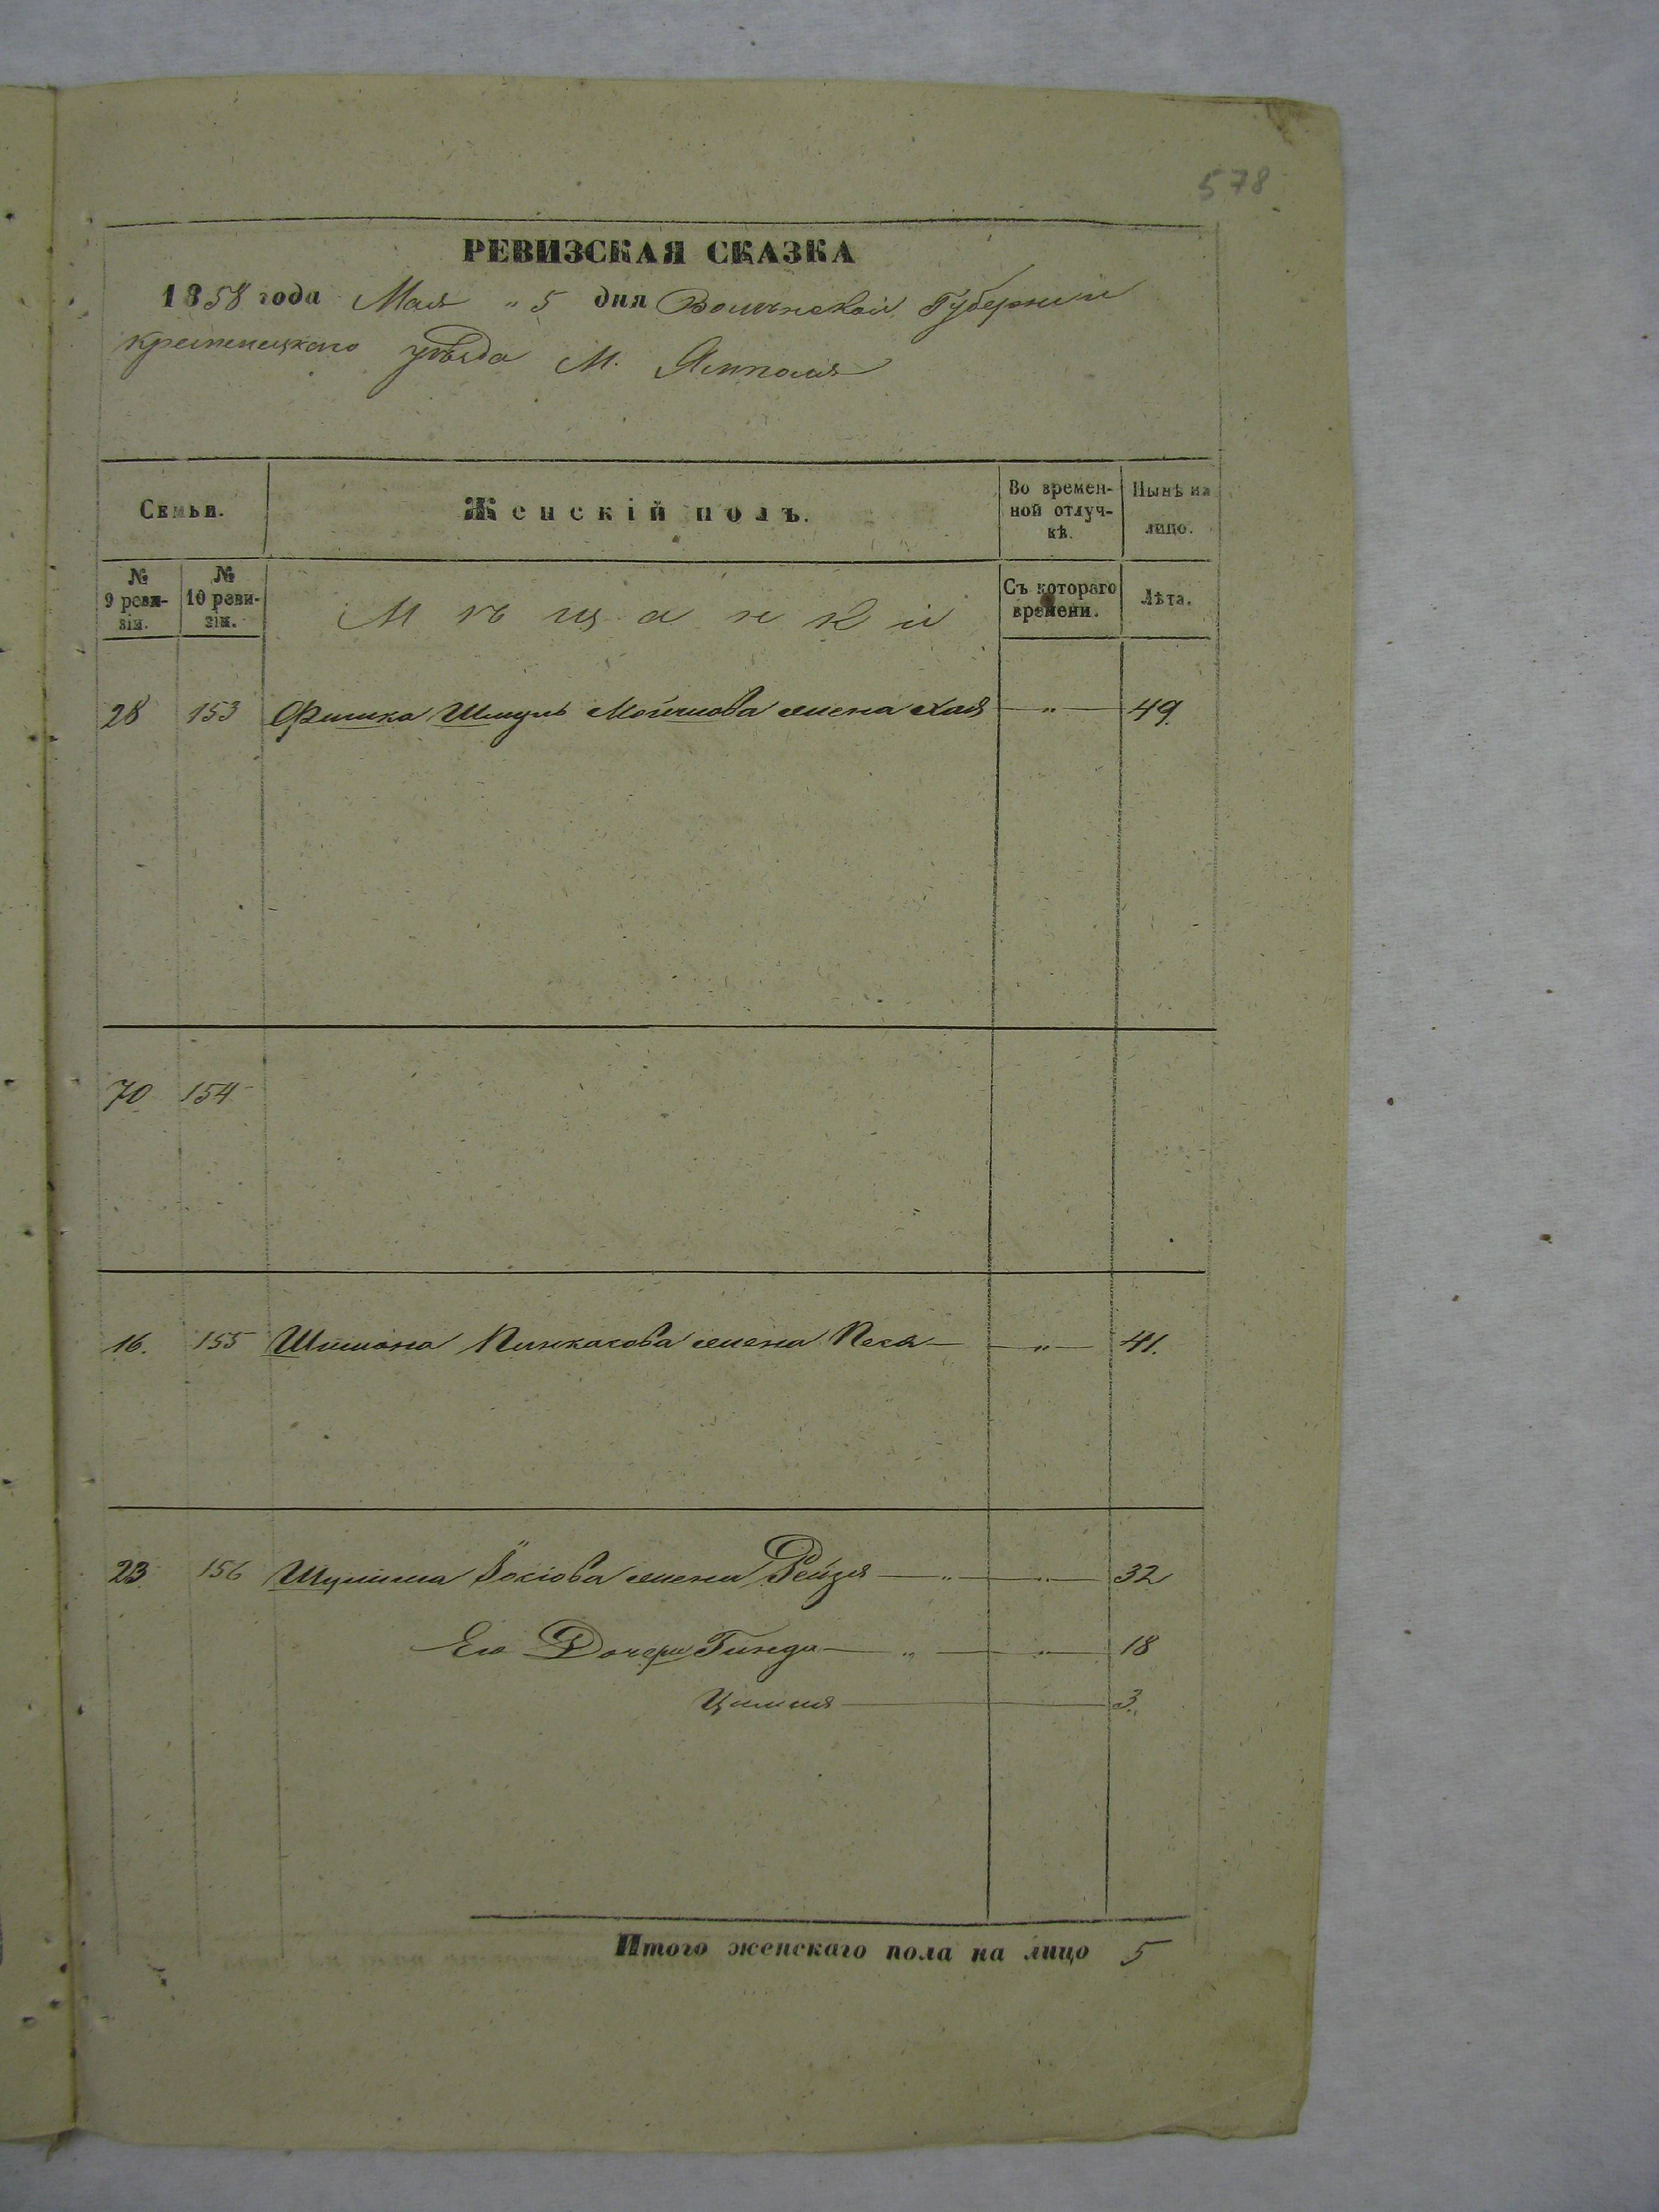 578
РЕВИЗСКАЯ СКАЗКА
1858 года Мая „ 5 дня Волынской Губерніи
Кременецкаго уѣзда М. Ямполя
Семьи. Женскій полъ. Во времен-ной отлуч-кѣ. Нынѣ на лицо.
№ 9 реви-зіи. № 10 реви-зіи. Мѣщанкі Съ котораго времени. Лѣта.
28 153 Фишка Шмуль Мойшова жена Хая — „ — 49.
70 154
16. 155 Шимона Пинкасова жена Песя — „ — 41.
23 156 Шулима Іосіова жена Рейзя — „ — „ — 32
Его Дочери Гинда — „ — „ — 18
3.
Итого женскаго пола на лицо 5